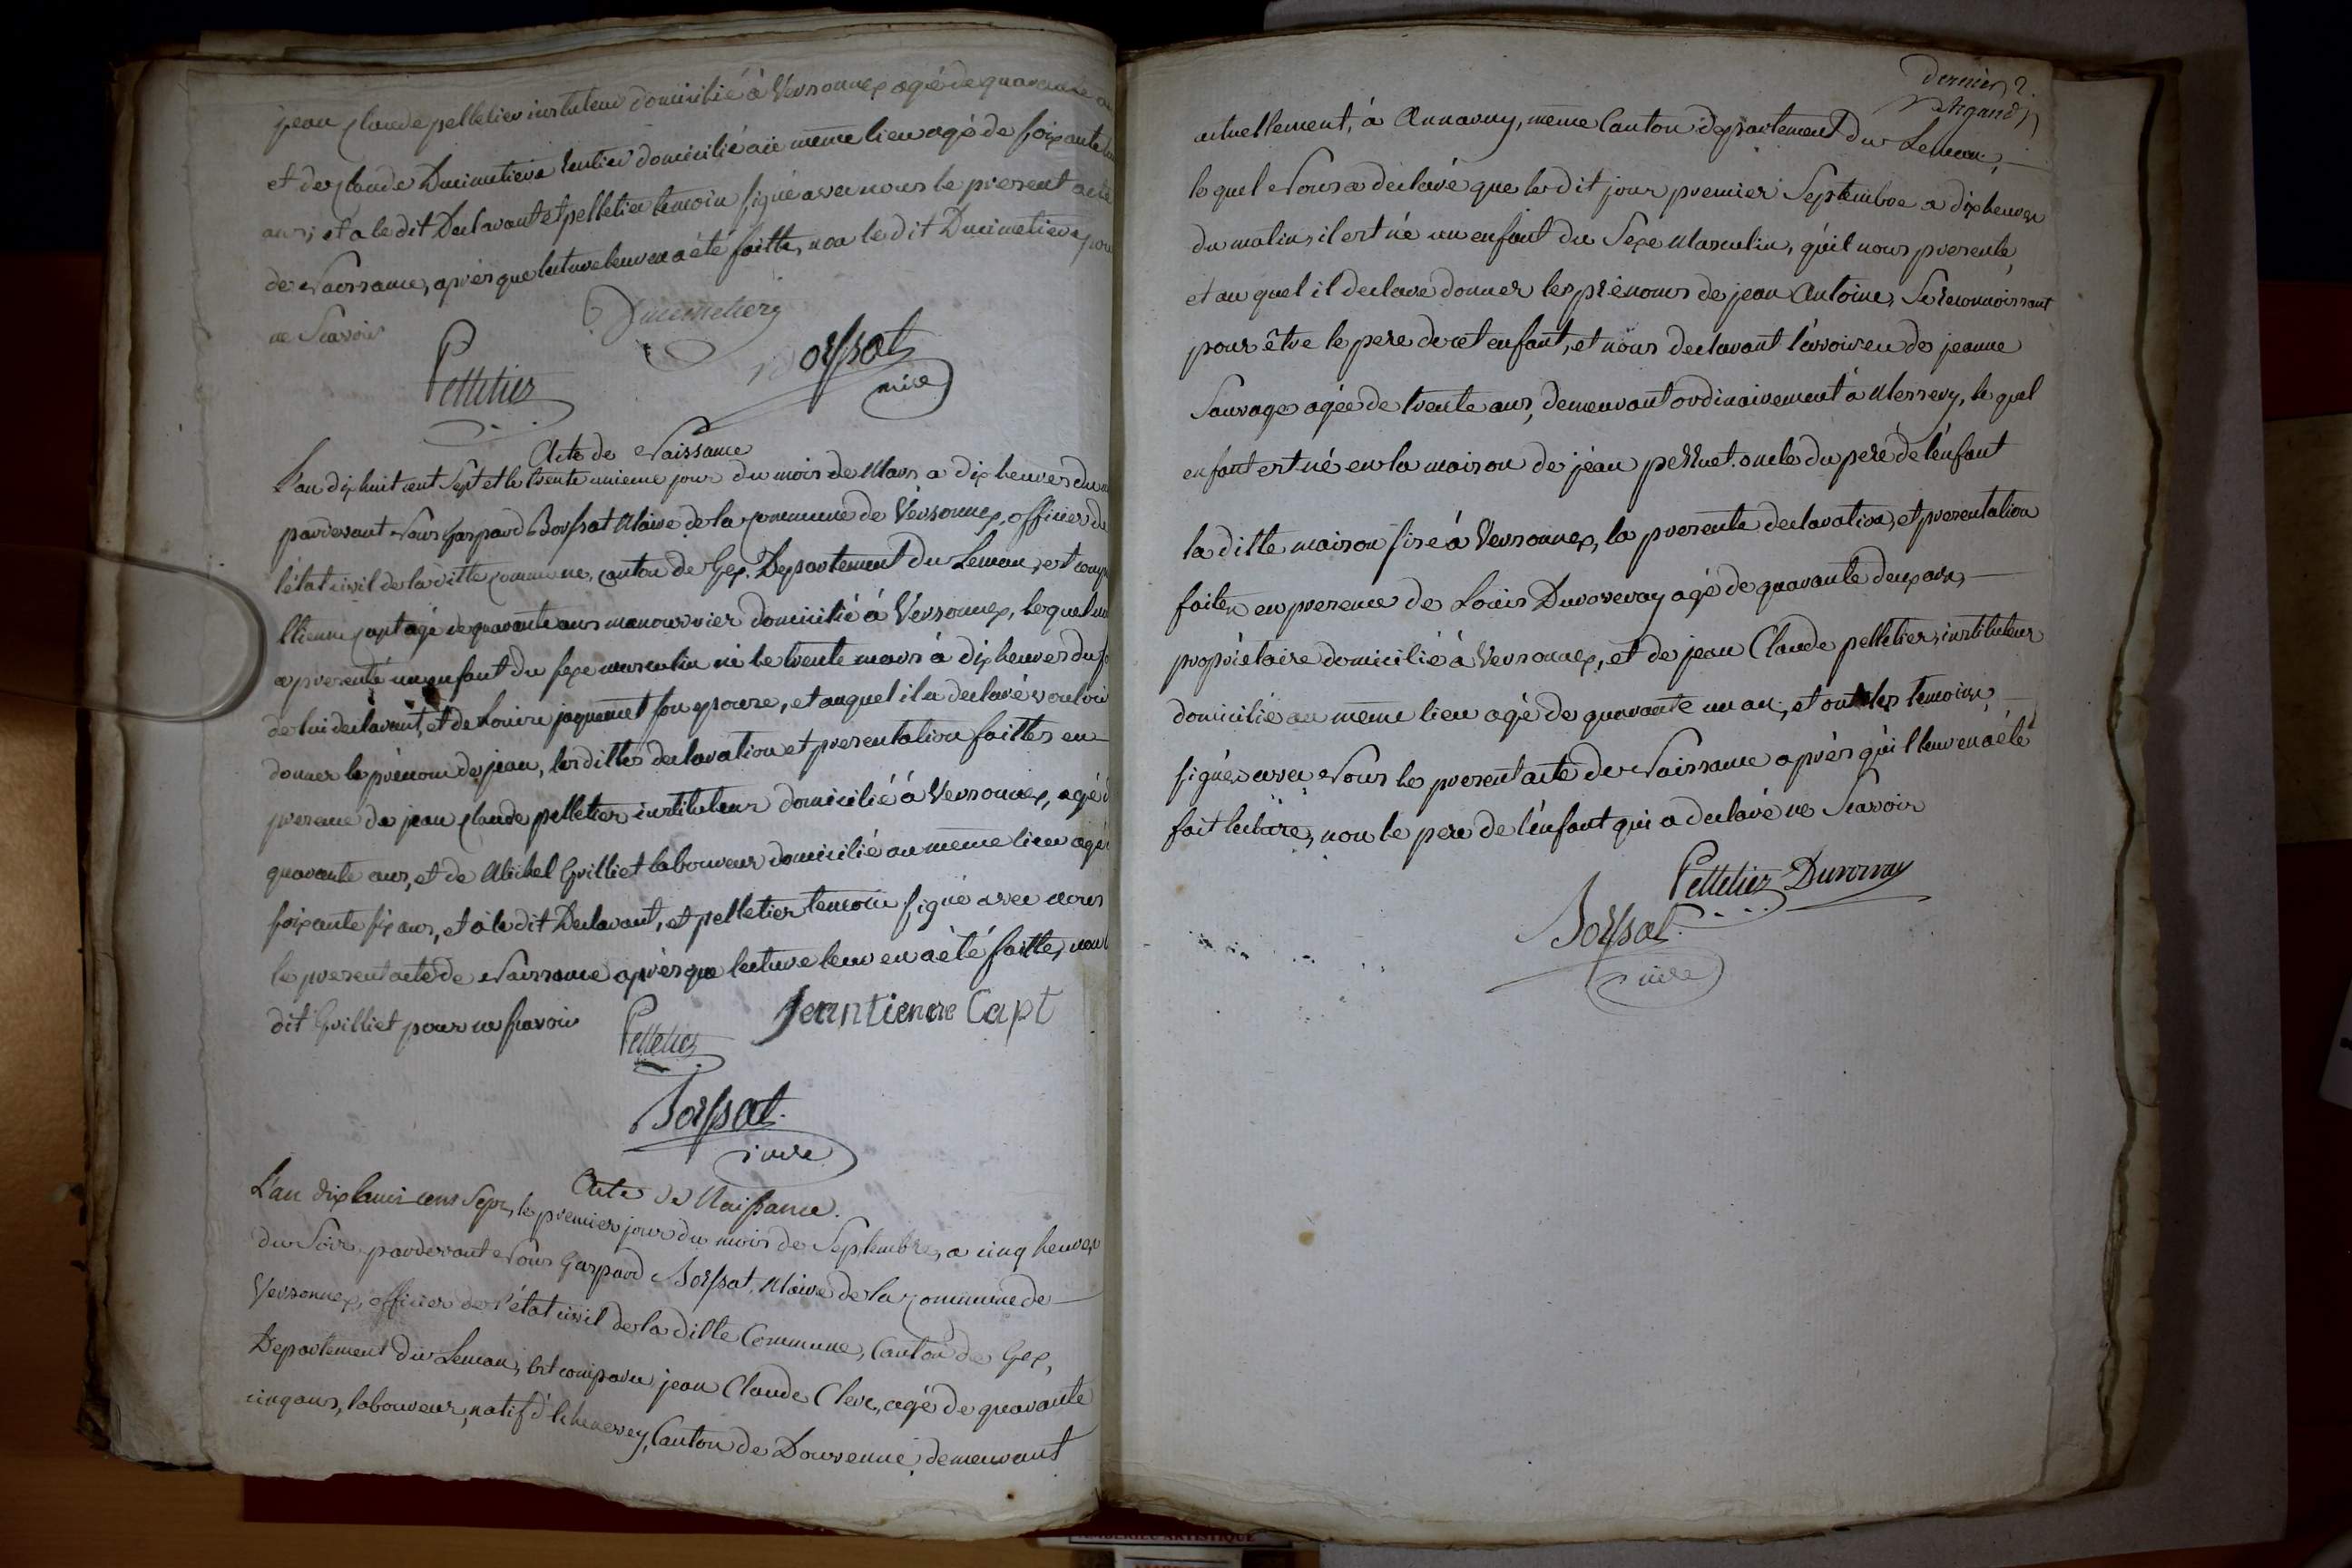 jean Claude pelletier instituteur domicilié à Versonnex agé de quarante
et de Claude Ducimetiere rentier domicilié au même lieu agé de soixante
ans; et a le dit Declarant et pelletier temoin signé avec nous le present acte
de Naissance, après que lecture leur en a été faitte, non le dit Ducimetiere pour
ne Scavoir
Pelletier
Borssat
mire
Acte de Naissance
L'an dix huit cent Sept et le trente unieme jour du mois de Mars a dix heures du
pardevant Nous Gaspard Borssat Maire de la Commune de Versonnex, officier de
l'état civil de la ditte Commune, canton de Gex, Departement du Leman, est comparu
Etienne Capt agé de quarante ans manouvrier domicilié à Versonnex, lequel
a presenté un enfant du sexe masculin né le trente mars à dix heures du
de lui declarant, et de Louise jaquemet son epouse, et auquel il a declaré vouloir
donner le prénom de jean, les dittes declaration et presentation faittes en
presence de jean Claude pelletier instituteur domicilié à Versonnex, agé
quarante ans, et de Michel Grilliet laboureur domicilié au même lieu agé
soixante six ans, et a le dit Declarant, et pelletier temoin signé avec nous
le present acte de Naissance après que lecture leur en a été faitte, non
dit Grilliet pour ne scavoir
Pelletier
Jean tienne Capt
Borssat
mire
Acte de Naissance.
L'an dix huit cent Sept, le premier jour du mois de Septembre, a cinq heures
du Soir, pardevant Nous Gaspard Borssat, Maire de la Commune de
Versonnex, officier de l'état civil de la ditte Commune, Canton de Gex,
Departement du Leman, est comparu jean Claude Clerc, agé de quarante
cinq ans, laboureur, natif d'Echenevey, Canton de Douvenne, demeurant
dernier 2.
actuellement, à Annavuy, même Canton departement du Leman,
le quel Nous a declaré que le dit jour premier Septembre a dix heures
du matin, il est né un enfant du Sexe Masculin, qu'il nous presente,
et au quel il declare donner les prénoms de jean Antoine, Se reconnoissant
pour être le pere de cet enfant, et nous declarant l'avoir eu de jeanne
Sauvage agée de trente ans, demeurant ordinairement à Messery, le quel
enfant est né en la maison de jean perruet oncle du pere de l'enfant
la ditte maison sise à Versonnex, la presente declaration, et presentation
faites en presence de Louis Duvorvray agé de quarante deux ans,
propriétaire domicilié à Versonnex, et de jean Claude pelletier, instituteur
domicilié au même lieu agé de quarante un an, et ont les temoins
signés avec Nous le present acte de Naissance après qu'il leur en a été
fait lecture, non le pere de l'enfant qui a declaré ne Scavoir
Pelletier
Borssat
mire